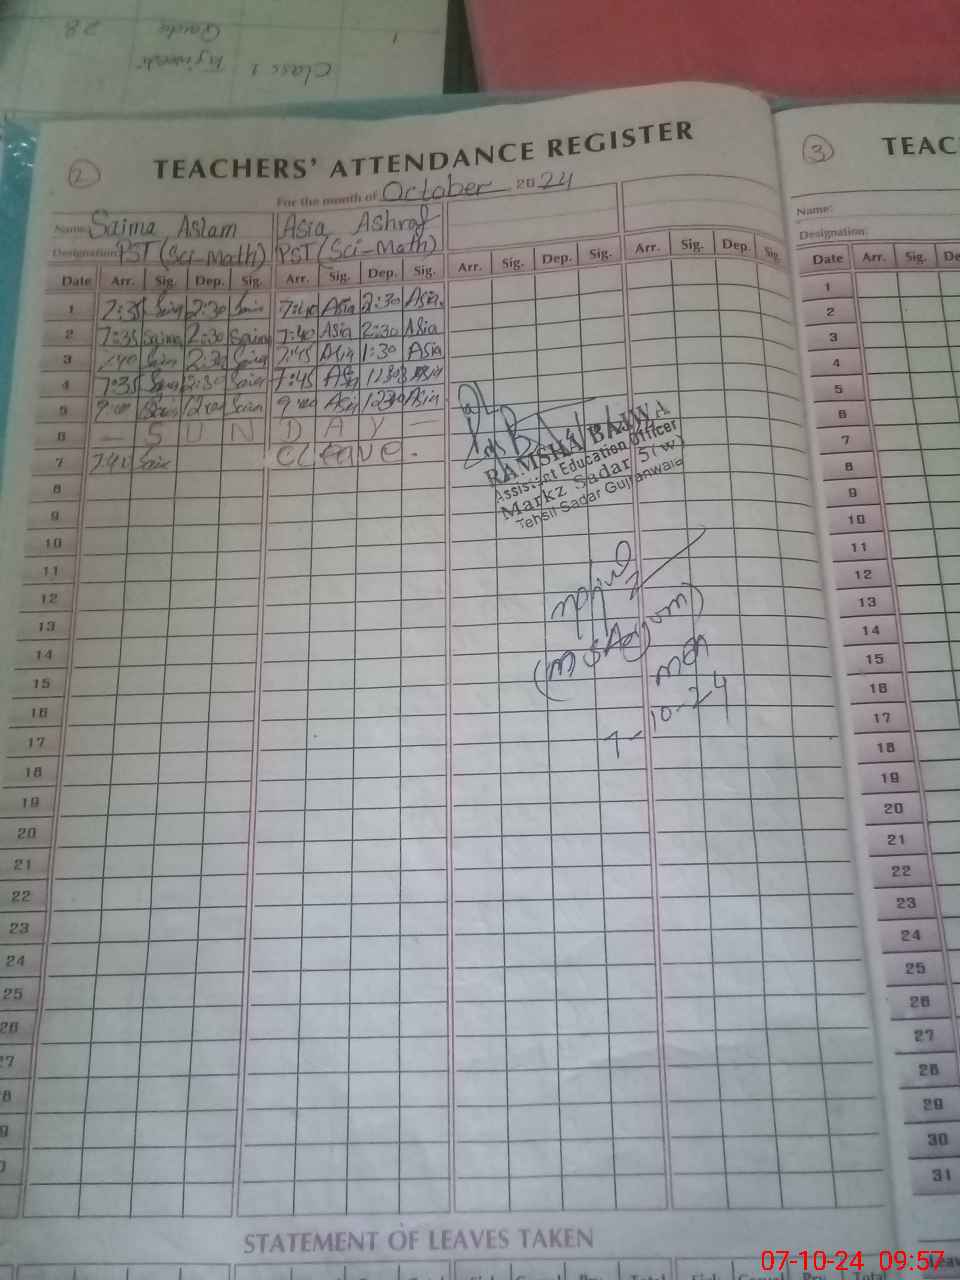 Class 1
28
2
TEACHERS' ATTENDANCE REGISTER
For the month of October 2024
Name: Saima Aslam Asia Ashraf
Designation: PST (Sci-Math) PST (Sci-Math)
Date Arr. Sig. Dep. Sig. Arr. Sig. Dep. Sig. Arr. Sig. Dep. Sig. Arr. Sig. Dep. Sig.
1 7:35 Saima 2:30 Saim 7:40 Asia 2:30 Asia
2 7:35 Saima 2:30 Saima 7:40 Asia 2:30 Asia
3 :40 Saim 2:30 Saima 7:45 Asia 1:30 Asia
4 7:35 Saim 2:30 Saim 7:45 Asia Asia
5 9:00 Saim Saim 9:00 Asia Asia
6 — S U N D A Y —
7 7:40 Saim C Leave.
8
9
10
11
12
13
14
15
16
17
18
19
20
21
22
23
24
25
26
27
8
9
RAMSHA BAJWA
Assistant Education Officer
Markz Sadar 5 (W)
Tehsil Sadar Gujranwala
7-10-24
STATEMENT OF LEAVES TAKEN
3
TEAC
Name:
Designation:
Date Arr. Sig. De
1
2
3
4
5
6
7
8
9
10
11
12
13
14
15
16
17
18
19
20
21
22
23
24
25
26
27
28
29
30
31
07-10-24 09:57